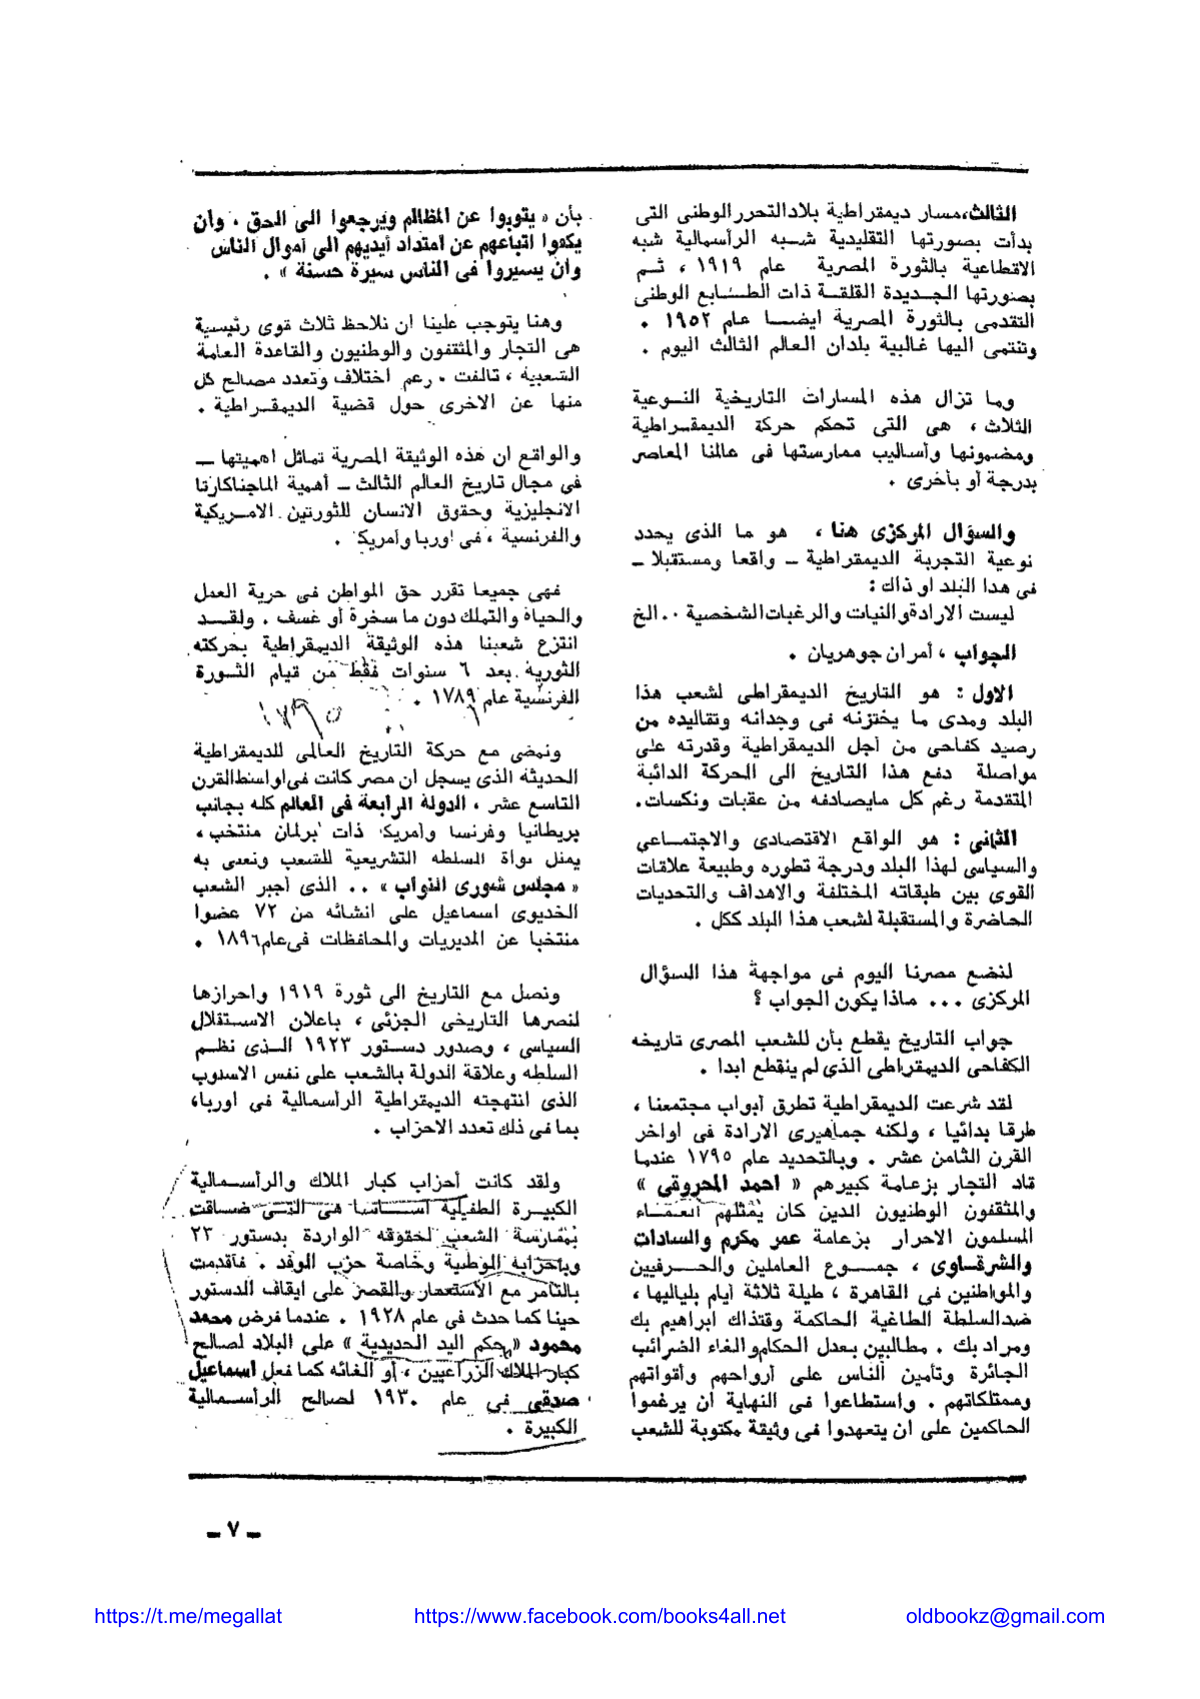 الثالث، مسار ديمقراطية بلاد التحرر الوطنى التى
بدأت بصورتها التقليدية شبه الرأسمالية شبه
الاقطاعية بالثورة المصرية عام ١٩١٩ ، ثم
بصورتها الجديدة القلقة ذات الطابع الوطنى
التقدمى بالثورة المصرية ايضا عام ١٩٥٢ .
وتنتمى اليها غالبية بلدان العالم الثالث اليوم .
وما تزال هذه المسارات التاريخية النوعية
الثلاث ، هى التى تحكم حركة الديمقراطية
ومضمونها وأساليب ممارستها فى عالمنا المعاصر
بدرجة أو بأخرى .
والسؤال المركزى هنا ، هو ما الذى يحدد
نوعية التجربة الديمقراطية ــ واقعا ومستقبلا ــ
فى هذا البلد او ذاك :
ليست الارادة والنيات والرغبات الشخصية .. الخ
الجواب ، أمران جوهريان .
الاول : هو التاريخ الديمقراطى لشعب هذا
البلد ومدى ما يختزنه فى وجدانه وتقاليده من
رصيد كفاحى من أجل الديمقراطية وقدرته على
مواصلة دفع هذا التاريخ الى الحركة الدائبة
المتقدمة رغم كل مايصادفه من عقبات ونكسات.
الثانى : هو الواقع الاقتصادى والاجتماعى
والسياسى لهذا البلد ودرجة تطوره وطبيعة علاقات
القوى بين طبقاته المختلفة والاهداف والتحديات
الحاضرة والمستقبلة لشعب هذا البلد ككل .
لنضع مصرنا اليوم فى مواجهة هذا السؤال
المركزى ... ماذا يكون الجواب ؟
جواب التاريخ يقطع بأن للشعب المصرى تاريخه
الكفاحى الديمقراطى الذى لم ينقطع ابدا .
لقد شرعت الديمقراطية تطرق أبواب مجتمعنا ،
طرقا بدائيا ، ولكنه جماهيرى الارادة فى اواخر
القرن الثامن عشر . وبالتحديد عام ١٧٩٥ عندما
قاد التجار بزعامة كبيرهم « احمد المحروقى »
والمثقفون الوطنيون الذين كان يمثلهم العلماء
المسلمون الاحرار بزعامة عمر مكرم والسادات
والشرقاوى ، جموع العاملين والحرفيين
والمواطنين فى القاهرة ، طيلة ثلاثة أيام بلياليها ،
ضد السلطة الطاغية الحاكمة وقتذاك ابراهيم بك
ومراد بك . مطالبين بعدل الحكام والغاء الضرائب
الجائرة وتأمين الناس على أرواحهم وأقواتهم
وممتلكاتهم . واستطاعوا فى النهاية ان يرغموا
الحاكمين على ان يتعهدوا فى وثيقة مكتوبة للشعب
بأن « يتوبوا عن المظالم ويرجعوا الى الحق ، وان
يكفوا اتباعهم عن امتداد أيديهم الى اموال الناس
وان يسيروا فى الناس سيرة حسنة » .
وهنا يتوجب علينا ان نلاحظ ثلاث قوى رئيسية
هى التجار والمثقفون والوطنيون والقاعدة العامة
الشعبية ، تالفت . رغم اختلاف وتعدد مصالح كل
منها عن الاخرى حول قضية الديمقراطية .
والواقع ان هذه الوثيقة المصرية تماثل اهميتها ــ
فى مجال تاريخ العالم الثالث ــ أهمية الماجناكارتا
الانجليزية وحقوق الانسان للثورتين الامريكية
والفرنسية ، فى اوربا وأمريكا .
فهى جميعا تقرر حق المواطن فى حرية العمل
والحياة والتملك دون ما سخرة أو عسف . ولقد
انتزع شعبنا هذه الوثيقة الديمقراطية بحركته
الثورية بعد ٦ سنوات فقط من قيام الثورة
الفرنسية عام ١٧٨٩ .
١٧٩٥
ونمضى مع حركة التاريخ العالمى للديمقراطية
الحديثة الذى يسجل ان مصر كانت فى اواسط القرن
التاسع عشر ، الدولة الرابعة فى العالم كله بجانب
بريطانيا وفرنسا وأمريكا ذات برلمان منتخب ،
يمثل نواة السلطة التشريعية للشعب ونعنى به
« مجلس شورى النواب » .. الذى أجبر الشعب
الخديوى اسماعيل على انشائه من ٧٢ عضوا
منتخبا عن المديريات والمحافظات فى عام ١٨٩٦ .
ونصل مع التاريخ الى ثورة ١٩١٩ واحرازها
لنصرها التاريخى الجزئى ، باعلان الاستقلال
السياسى ، وصدور دستور ١٩٢٣ الذى نظم
السلطة وعلاقة الدولة بالشعب على نفس الاسلوب
الذى انتهجته الديمقراطية الرأسمالية فى اوربا،
بما فى ذلك تعدد الاحزاب .
ولقد كانت أحزاب كبار الملاك والرأسمالية
الكبيرة الطفيلية أساسا هى التى ضاقت
بممارسة الشعب لحقوقه الواردة بدستور ٢٣
وبأحزابه الوطنية وخاصة حزب الوفد . فأقدمت
بالتآمر مع الاستعمار والقصر على ايقاف الدستور
حينا كما حدث فى عام ١٩٢٨ . عندما فرض محمد
محمود « حكم اليد الحديدية » على البلاد لصالح
كبار الملاك الزراعيين ، أو الغائه كما فعل اسماعيل
صدقى فى عام ١٩٣٠ لصالح الرأسمالية
الكبيرة .
ــ ٧ ــ
https://t.me/megallat
https://www.facebook.com/books4all.net
oldbookz@gmail.com